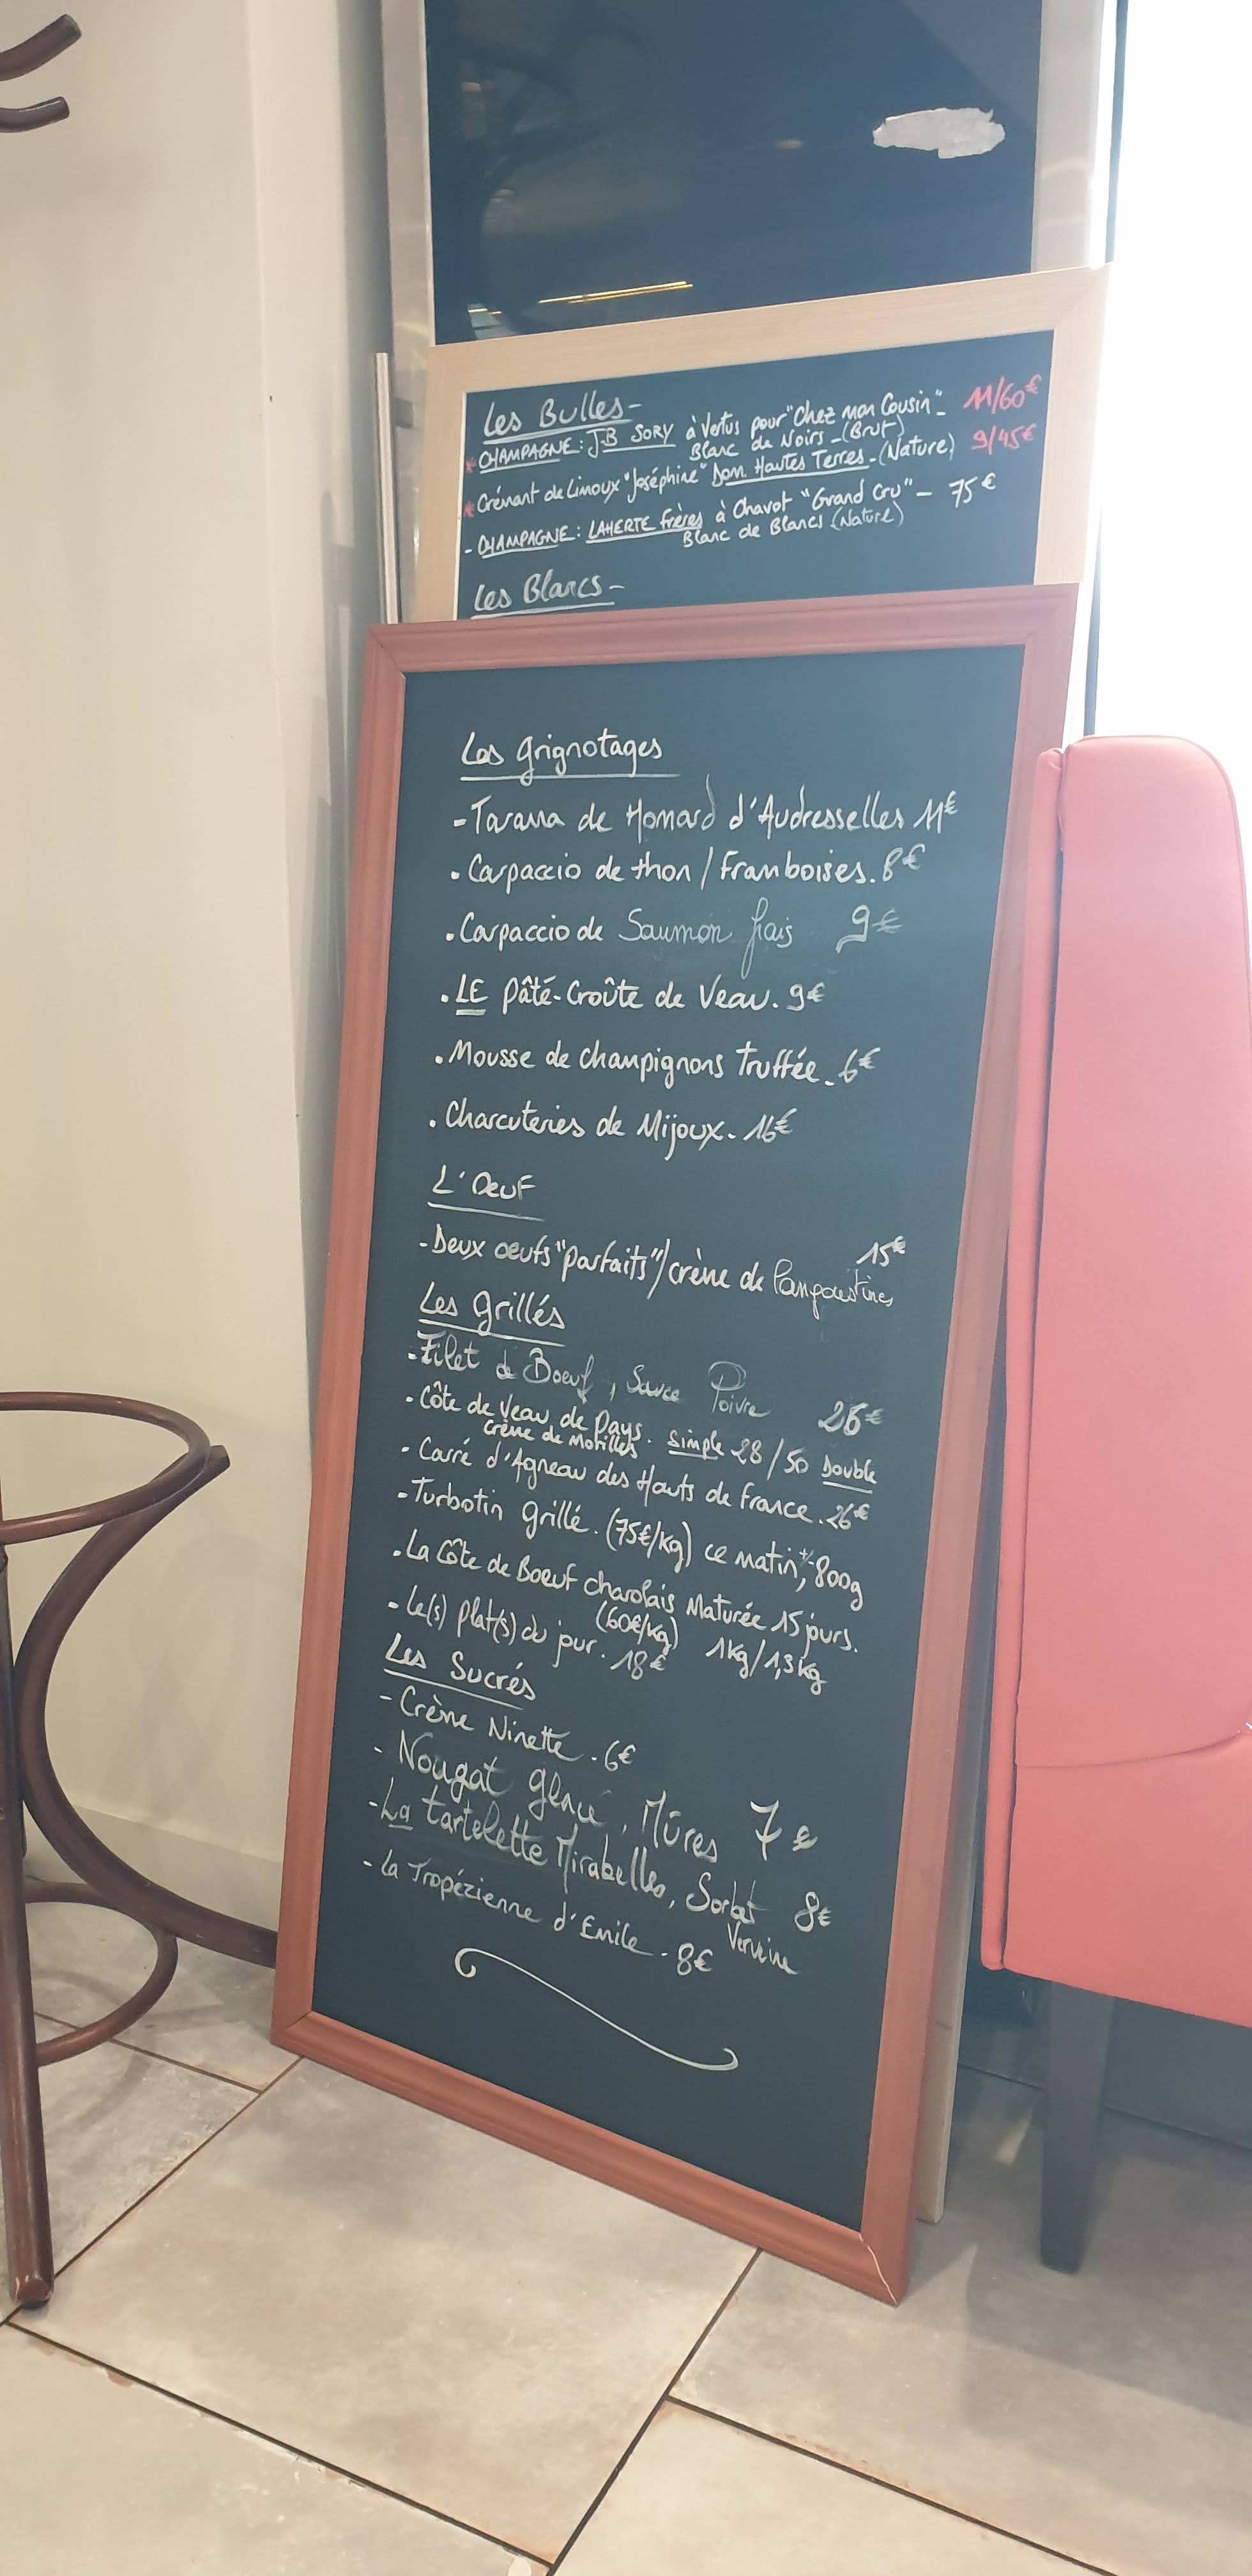 Les Bulles-
* CHAMPAGNE: J-B SORY à Vertus pour "Chez mon Cousin"- 11/60€
Blanc de Noirs-(Brut)
* Crémant de Limoux "Joséphine" Dom. Hautes Terres-(Nature) 9/45€
- CHAMPAGNE: LAHERTE Frères à Chavot "Grand Cru"- 75€
Blanc de Blancs (Nature)
Les Blancs-
Les grignotages
-Tarama de Homard d'Audresselles 11€
.Carpaccio de thon/Framboises. 8€
.Carpaccio de Saumon frais 9€
.LE pâté-Croûte de Veau. 9€
.Mousse de champignons truffée. 6€
.Charcuteries de Mijoux. 16€
L'Oeuf
-Deux oeufs "parfaits"/crème de langoustines 15€
Les grillés
.Filet de Boeuf, Sauce Poivre 26€
.Côte de Veau de Pays. Simple 28/50 Double
Crème de Morilles
.Carré d'Agneau des Hauts de france. 26€
-Turbotin grillé. (75€/kg) ce matin, +/-800g
.La Côte de Boeuf charolais Maturée 15 jours.
(60€/kg) 1kg/1,3kg
-Le(s) plat(s) du jour. 18€
Les Sucrés
-Crème Ninette. 6€
- Nougat glacé, Mûres 7€
-La tartelette Mirabelles, Sorbet 8€
Verveine
-La Tropézienne d'Emile. 8€